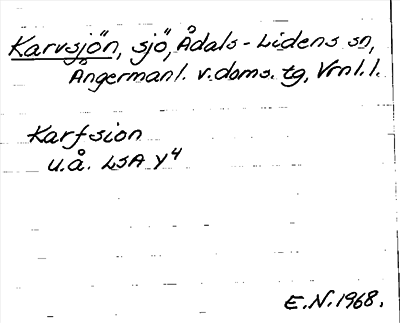 Karvsjön, sjö, Ådals-Lidens sn,
Ångermanl. v. doms. tg, Vrnl. l.
Karfsion
u.å. LSA Y4
E.N. 1968.